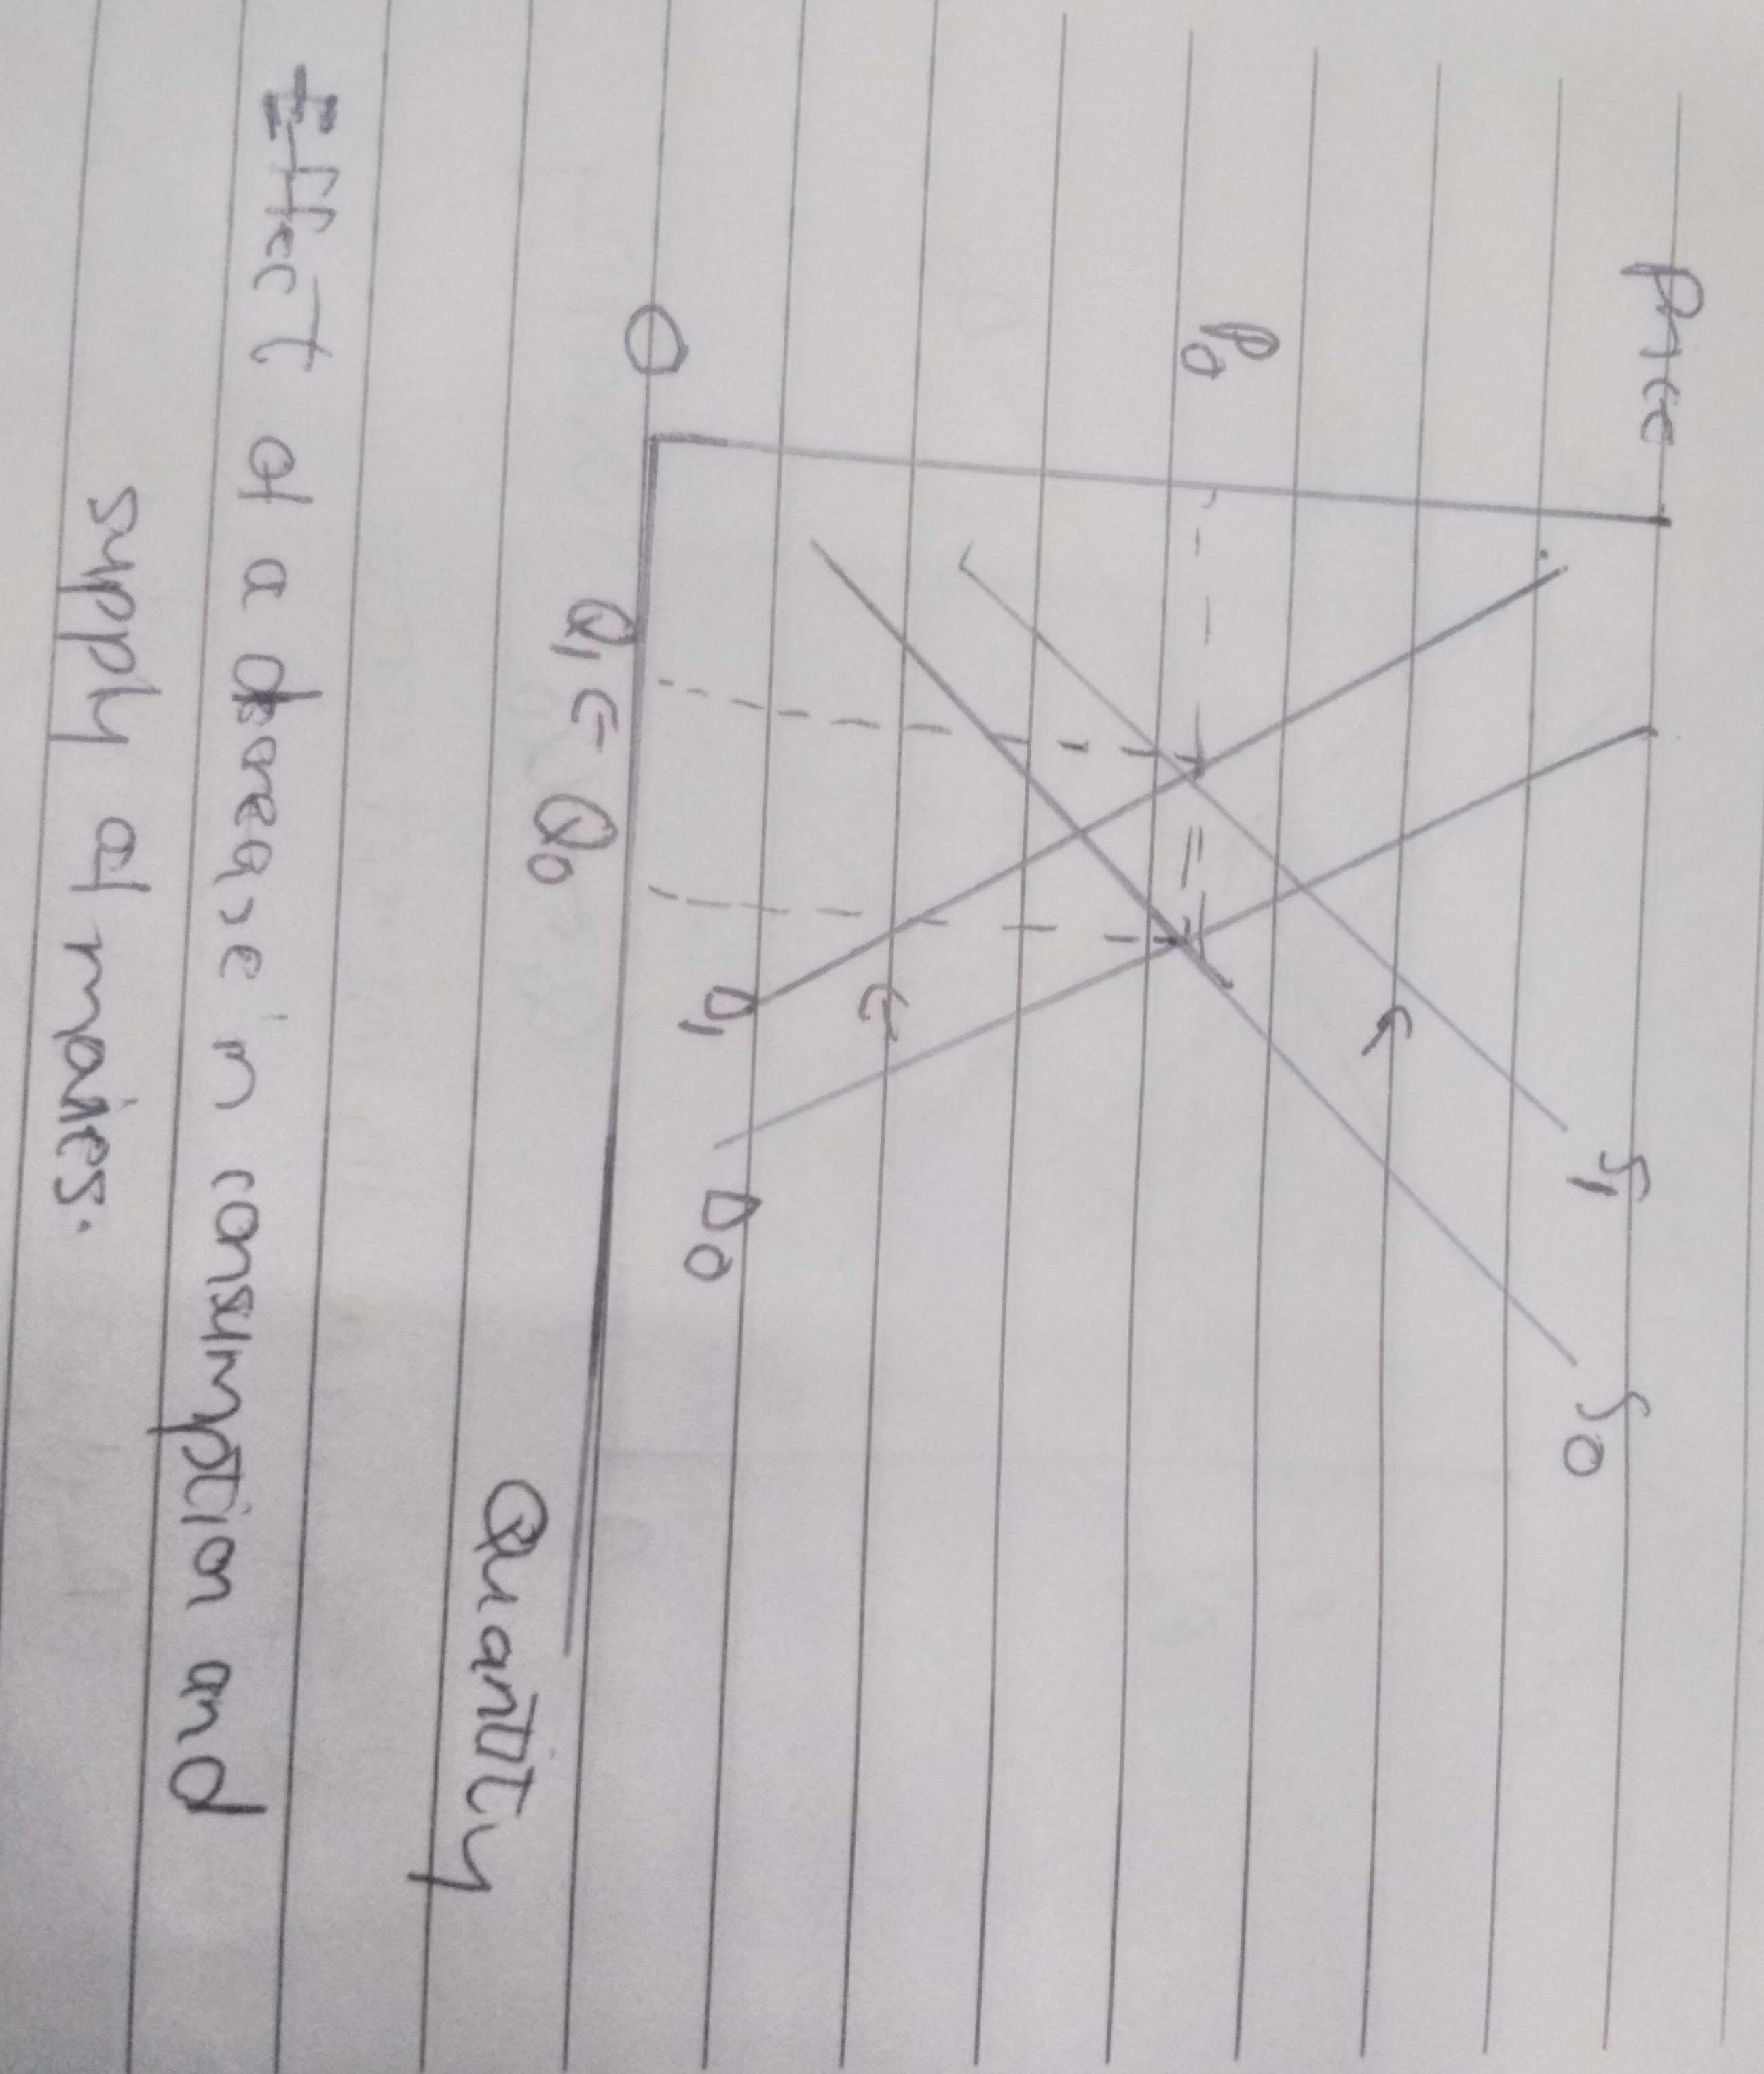 Price
S1
S0
P0
D1
D0
O
Q1 ← Q0
Quantity
Effect of a decrease in consumption and
supply of movies.